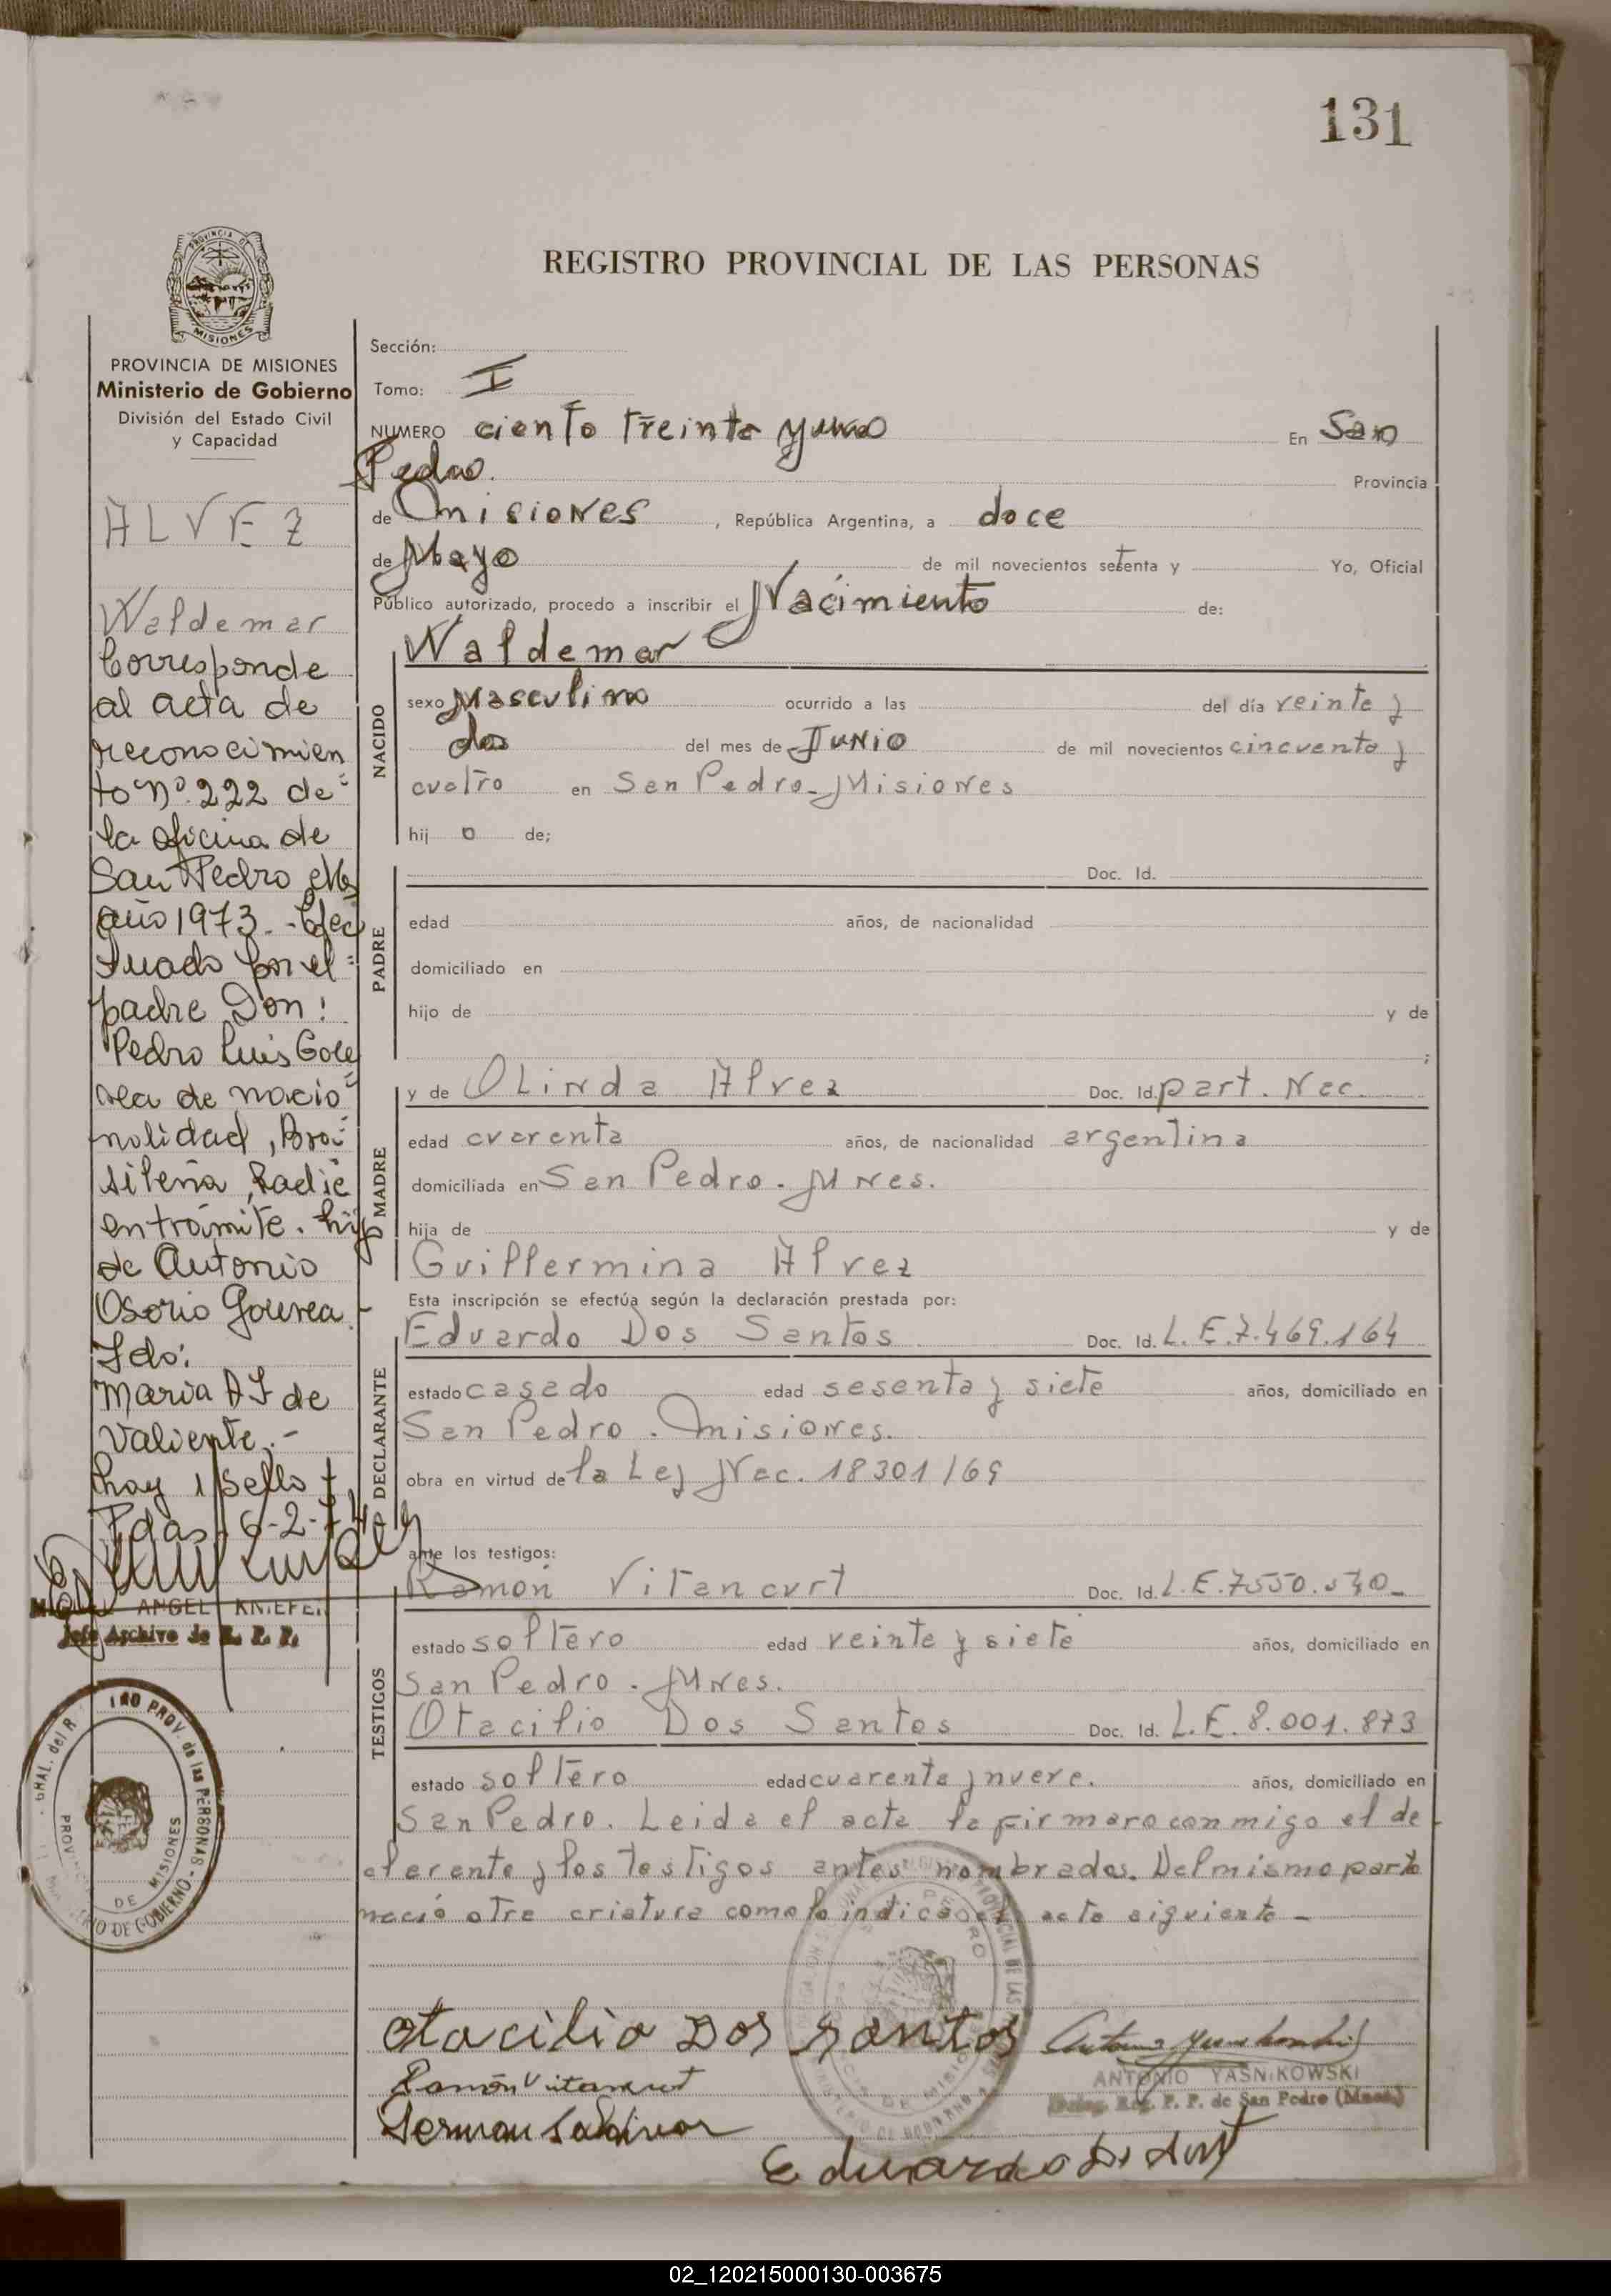 131
PROVINCIA DE
MISIONES
REGISTRO PROVINCIAL DE LAS PERSONAS
PROVINCIA DE MISIONES
Ministerio de Gobierno
División del Estado Civil
y Capacidad
ALVEZ
Waldemar
Corresponde
al acta de
reconocimien
to nº 222 de=
la oficina de
San Pedro
año 1973.- Efec
tuado por el=
padre Don:
Pedro Luis
de nacio=
nalidad, Bra=
sileña, Radic
en trámite. hijo
de Antonio
Osorio Gouvea.-
Fdo:
Maria A F de
Valiente.-
hay 1 sello
Pdas, 6-2-74
MIGUEL ANGEL KNIEFER
Jefe Archivo de R. P. P.
Sección:
Tomo: I
NUMERO ciento treinta y uno En San
Pedro. Provincia
de Misiones, República Argentina, a doce
de Mayo de mil novecientos setenta y Yo, Oficial
Público autorizado, procedo a inscribir el Nacimiento de:
NACIDO
Waldemar
sexo Masculino ocurrido a las del día veinte y
dos del mes de Junio de mil novecientos cincuenta y
cuatro en San Pedro-Misiones
hij o de;
PADRE
Doc. Id.
edad años, de nacionalidad
domiciliado en
hijo de y de
;
MADRE
y de Olinda Alvez Doc. Id. part. Nac.
edad cuarenta años, de nacionalidad argentina
domiciliada en San Pedro. Mnes.
hija de y de
Guillermina Alvez
Esta inscripción se efectúa según la declaración prestada por:
DECLARANTE
Eduardo Dos Santos Doc. Id. L.E.7.469.164
estado casado edad sesenta y siete años, domiciliado en
San Pedro. Misiones.
obra en virtud de la Ley Nac. 18301/69
ante los testigos:
TESTIGOS
Ramón Vitancurt Doc. Id. L.E.7550.540-
estado soltero edad veinte y siete años, domiciliado en
San Pedro. Mnes.
Otacilio Dos Santos Doc. Id. L.E.8.001.873
estado soltero edad cuarenta y nueve. años, domiciliado en
San Pedro. Leida el acta la firmaro conmigo el de
clarente y los testigos antes nombrados. Del mismo parto
nació otra criatura como lo indica el acta siguiente-
Otacilio Dos Santos
Ramón Vitancurt
German
Eduardo
ANTONIO YASNIKOWSKI
Deleg. Reg. P. P. de San Pedro (Mnes.)
PROV. de las PERSONAS
PROVINCIA DE MISIONES
02_120215000130-003675